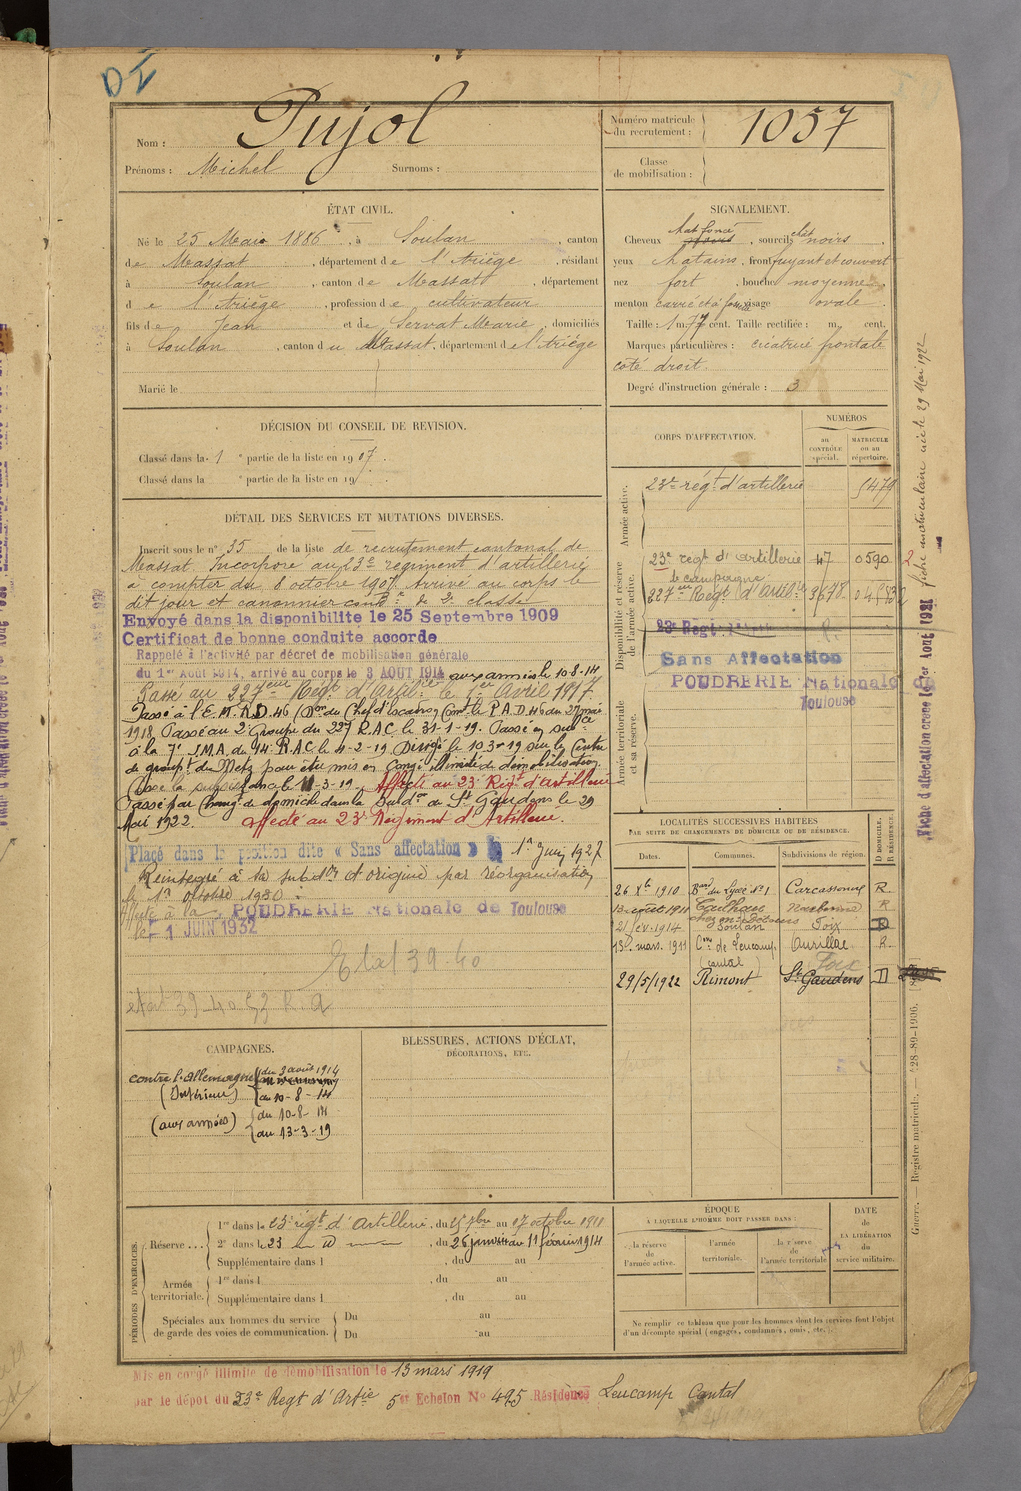 DI
Nom : Pujol
Prénoms : Michel Surnoms :
Numéro matricule du recrutement : 1057
Classe de mobilisation :
ÉTAT CIVIL.
Né le 25 Mai 1886, à Soulan, canton
de Massat, département de l'Ariège, résidant
à Soulan, canton de Massat, département
de l'Ariège, profession de cultivateur
fils de Jean et de Servat Marie, domiciliés
à Soulan, canton du Massat, département de l'Ariège
Marié le
SIGNALEMENT.
Cheveux chat foncé, sourcils chat noirs,
yeux chatains, front fuyant et couvert
nez fort, bouche moyenne,
menton carré et à fossette visage ovale.
Taille : 1 m. 77 cent. Taille rectifiée : m. cent.
Marques particulières : cicatrice frontale
coté droit.
Degré d'instruction générale : 3
DÉCISION DU CONSEIL DE REVISION.
Classé dans la 1e partie de la liste en 1907.
Classé dans la e partie de la liste en 19
DÉTAIL DES SERVICES ET MUTATIONS DIVERSES.
Inscrit sous le n° 35 de la liste de recrutement cantonal de
Massat. Incorporé au 23e régiment d'artillerie
à compter du 8 octobre 1907. Arrivé au corps le
dit jour et canonnier de 2e classe
Envoyé dans la disponibilité le 25 Septembre 1909
Certificat de bonne conduite accordé
Rappelé à l'activité par décret de mobilisation générale
du 1er Août 1914, arrivé au corps le 3 AOUT 1914 aux armées le 10-8-14
Passé au 227eme Régt d'Artie le 1er Avril 1917.
Passé à l'E.M.R.D. 46 Comt le P.A.D. 46 du 27 mai
1918. Passé au 2e Groupe du 227 R.A.C. le 31-1-19. Passé en subce
à la 7e S.M.A. du 14e R.A.C. le 4-2-19. Dirigé le 10-3-19 sur le Centre
de groupt de Metz pour être mis en Congé illimité de démobilisation
Affecté au 23e Régt d'artillerie
Passé par changt de domicile dans la Subdon de St Gaudens le 29
Mai 1922. affecté au 23e Régiment d'Artillerie.
Placé dans la position dite « Sans affectation » le 1er Juin 1927
Réintégré à sa subdon d'origine par réorganisation
le 1er octobre 1930
Affecté à la POUDRERIE Nationale de Toulouse
le 1 JUIN 1932
Etat 39.40
CORPS D'AFFECTATION.
NUMÉROS
au CONTRÔLE spécial.
MATRICULE ou au répertoire.
Armée active.
23e régt d'artillerie 5479
Disponibilité et réserve de l'armée active.
23e regt d'Artillerie 47 0590
de campagne
227eme Regt d'Artillie 3/678
23e Regt
Sans Affectation
POUDRERIE Nationale de
Toulouse
Armée territoriale et sa réserve.
LOCALITÉS SUCCESSIVES HABITÉES
PAR SUITE DE CHANGEMENTS DE DOMICILE OU DE RÉSIDENCE.
Dates. Communes. Subdivisions de région. D DOMICILE. R RÉSIDENCE.
26 Xbre 1910 Bard du Lycée n° 1 Carcassonne R.
13 août 1911 Narbonne R
21 fév. 1914 Soulan Foix D
13 mars 1919 Cne de Leucamp Aurillac R.
(cantal) Foix
29/5/1922 Rimont St Gaudens D
CAMPAGNES.
contre l'Allemagne du 3 août 1914
(Intérieur) au 10-8-14
(aux armées) du 10-8-14
au 13-3-19
BLESSURES, ACTIONS D'ÉCLAT,
DÉCORATIONS, ETC.
PÉRIODES D'EXERCICES.
Réserve... 1re dans le 23e régt d'Artillerie, du 25 7bre au 17 octobre 1911
2e dans le 23, du 26 janvier au 11 février 1914
Supplémentaire dans l , du au
Armée territoriale. 1re dans l , du au
Supplémentaire dans l , du au
Spéciales aux hommes du service de garde des voies de communication. Du au
Du au
ÉPOQUE
À LAQUELLE L'HOMME DOIT PASSER DANS :
la réserve de l'armée active.
l'armée territoriale.
la réserve de l'armée territoriale
DATE de LA LIBÉRATION du service militaire.
Ne remplir ce tableau que pour les hommes dont les services font l'objet
d'un décompte spécial (engagés, condamnés, omis, etc.)
Mis en congé illimité de démobilisation le 13 mars 1919
par le dépôt du 23e Regt d'Artie 5er Echelon N° 495 Résidence Leucamp Cantal
fiche matriculaire créée le 29 Mai 1922
Fiche d'affectation créée le 1er Août 1931
Guerre. — Registre matricule. — 428-89-1906.